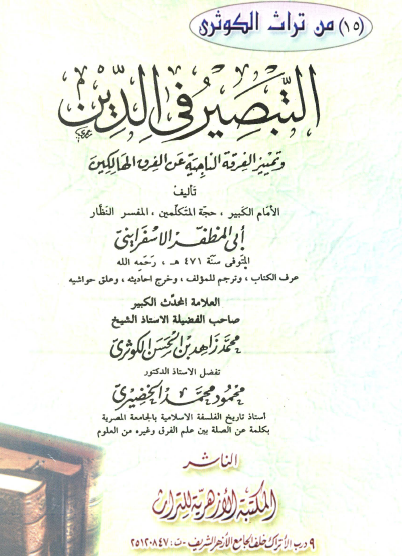 (١٥) من تراث الكوثرى
التبصير فى الدين
وتمييز الفرقة الناجية عن الفرق الهالكين
تأليف
الأمام الكبير ، حجة المتكلمين ، المفسر النظار
أبى المظفر الاسفراينى
المتوفى سنة ٤٧١ هـ ، رحمه الله
عرف الكتاب ، وترجم للمؤلف ، وخرج احاديثه ، وعلق حواشيه
العلامة المحدث الكبير
صاحب الفضيلة الاستاذ الشيخ
محمد زاهد بن الحسن الكوثرى
تفضل الاستاذ الدكتور
محمود محمد الخضيرى
أستاذ تاريخ الفلسفة الاسلامية بالجامعة المصرية
بكلمة عن الصلة بين علم الفرق وغيره من العلوم
الناشر
المكتبة الأزهرية للتراث
٩ درب الأتراك خلف الجامع الأزهر الشريف - ت : ٢٥١٢٠٨٤٧